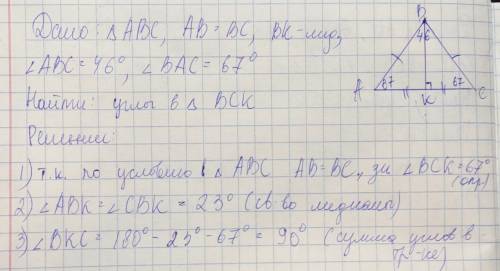 Дано: △ABC, AB=BC, BK-мед,
∠ABC=46°, ∠BAC=67°
Найти: углы в △ BCK
Решение:
B
46
A 67 K 67 C
1) т.к. по условию в △ ABC AB=BC, зн ∠BCK=67°
2) ∠ABK=∠CBK = 23° (св-во медианы)
3) ∠BKC=180°-23°-67°=90° (сумма углов в
тр-ке)